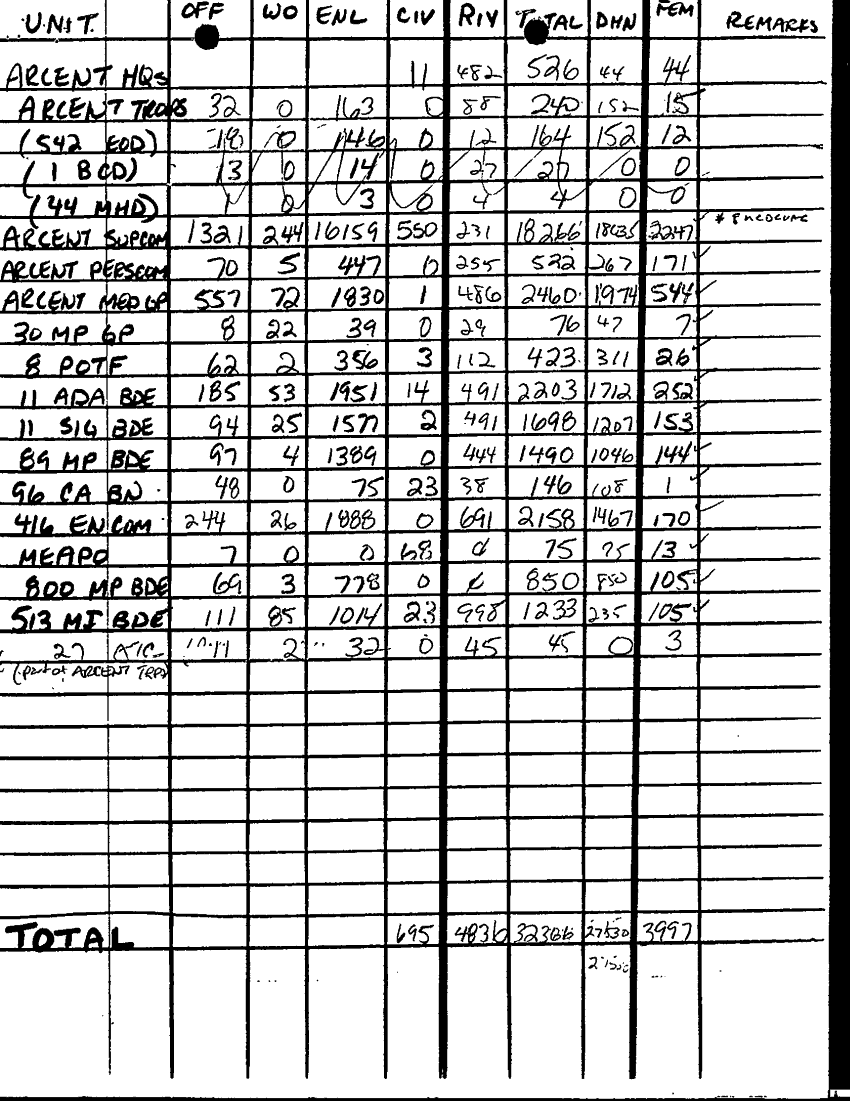 UNIT OFF WO ENL CIV RIY TOTAL DHN FEM REMARKS
ARCENT HQs 11 482 526 44 44
ARCENT TROOPS 32 0 163 0 88 240 152 15
(542 EOD) 18 0 146 0 12 164 152 12
(1 BCD) 13 0 14 0 27 27 0 0
(44 MHD) 1 0 3 0 4 4 0 0
ARCENT SUPCOM 1321 244 16159 550 231 18266 18035 2247
ARCENT PERSCOM 70 5 447 0 255 522 267 171
ARCENT MED GP 557 72 1830 1 486 2460 1974 544
30 MP GP 8 22 39 0 29 76 47 7
8 POTF 62 2 356 3 112 423 311 26
11 ADA BDE 185 53 1951 14 491 2203 1712 252
11 SIG BDE 94 25 1577 2 491 1698 1207 153
89 MP BDE 97 4 1389 0 444 1490 1046 144
96 CA BN 48 0 75 23 38 146 108 1
416 EN COM 244 26 1888 0 691 2158 1467 170
MEAPO 7 0 0 68 0 75 75 13
800 MP BDE 69 3 778 0 850 850 105
513 MI BDE 111 85 1014 23 998 1233 235 105
27 11 2 32 0 45 45 0 3
(part of ARCENT TRPS)
TOTAL 695 4836 32366 27530 3997